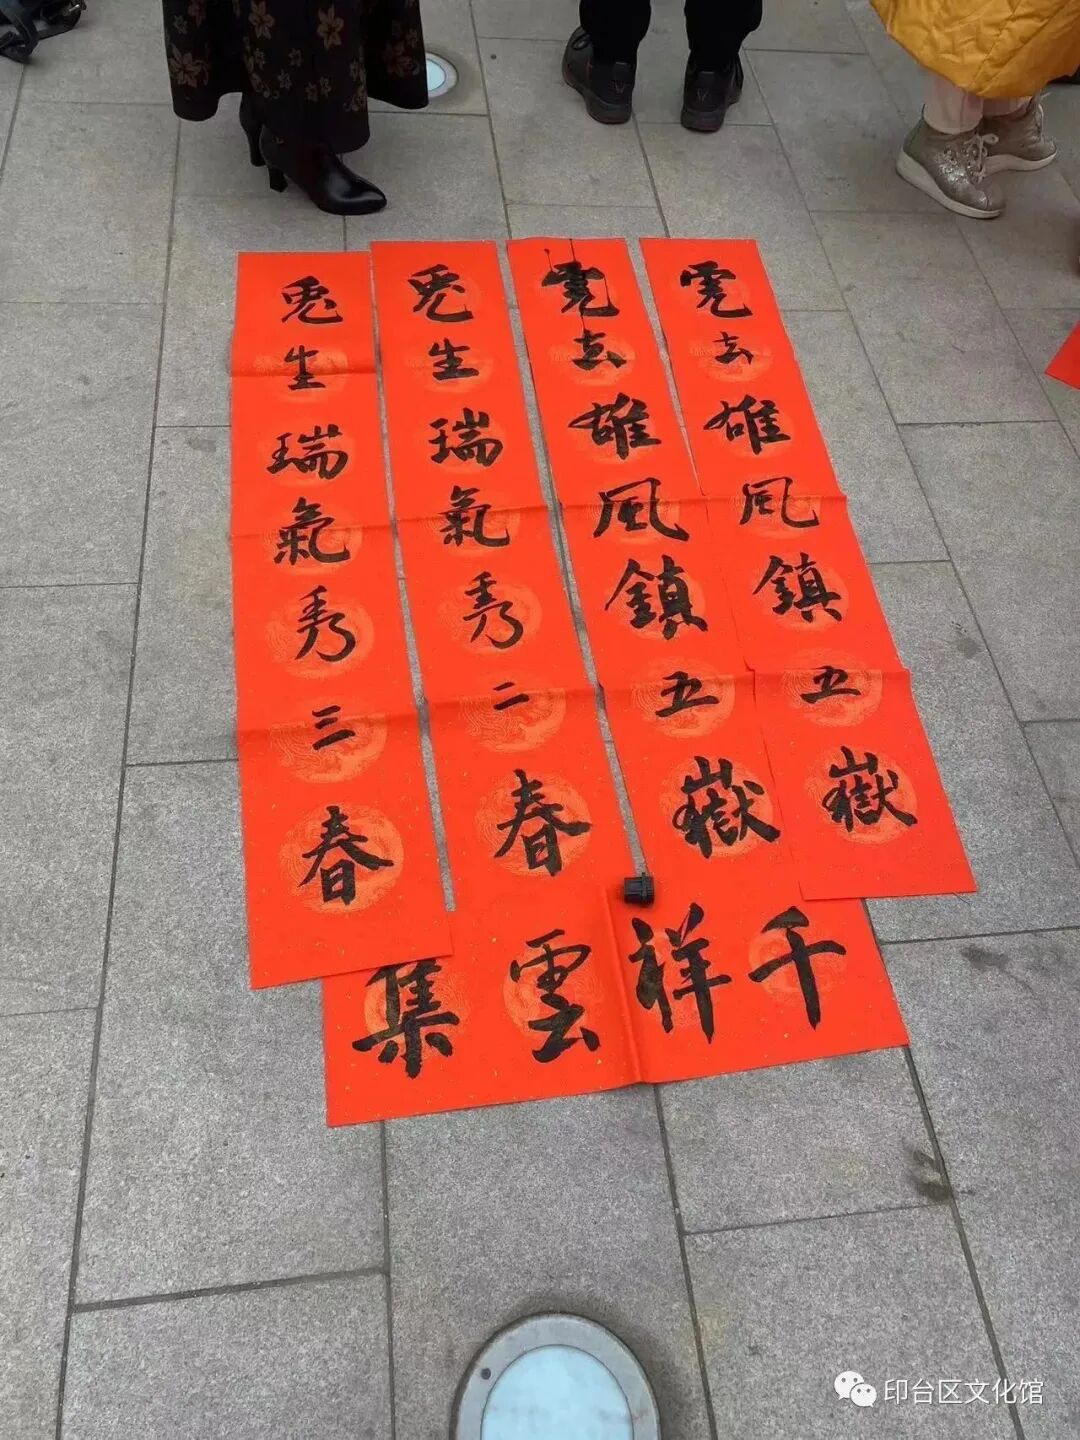 虎去雄風鎮五嶽
虎去雄風鎮五嶽
兔生瑞氣秀二春
兔生瑞氣秀三春
千祥雲集
印台区文化馆